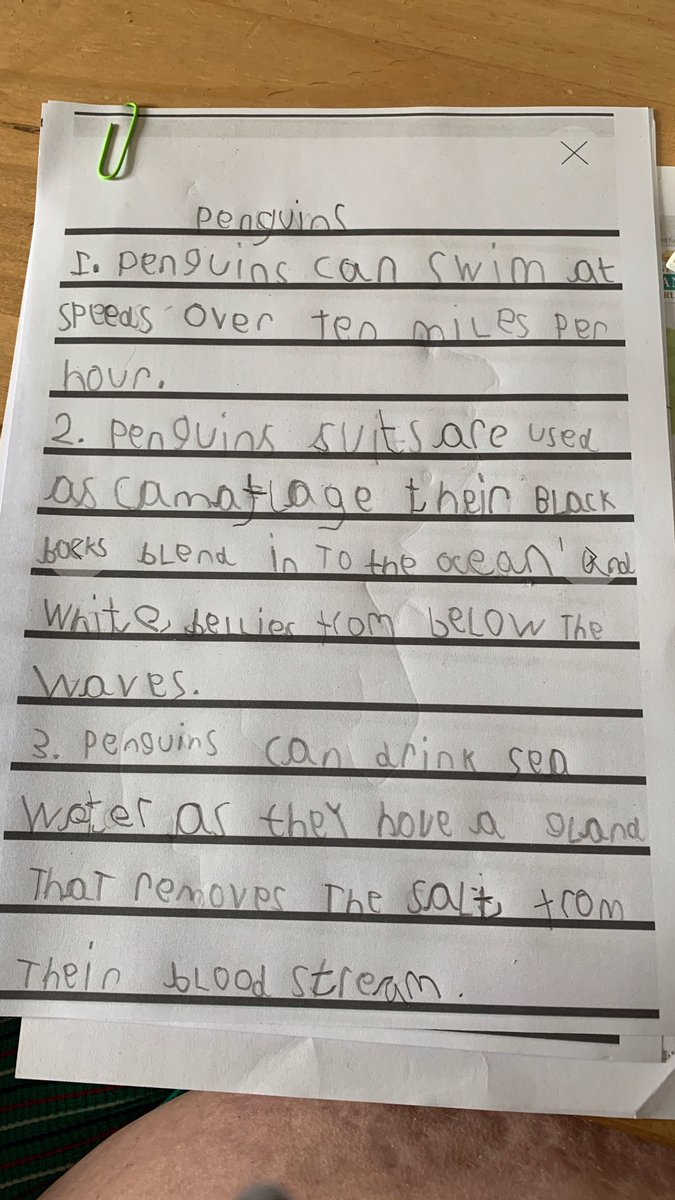 Penguins
1. Penguins can swim at
speeds over ten miles per
hour.
2. Penguins suits are used
as camaflage their BLACK
backs blend in To the ocean and
white bellies from beLow The
waves.
3. Penguins can drink sea
water as they have a gland
That removes The salt from
Their bLood stream.